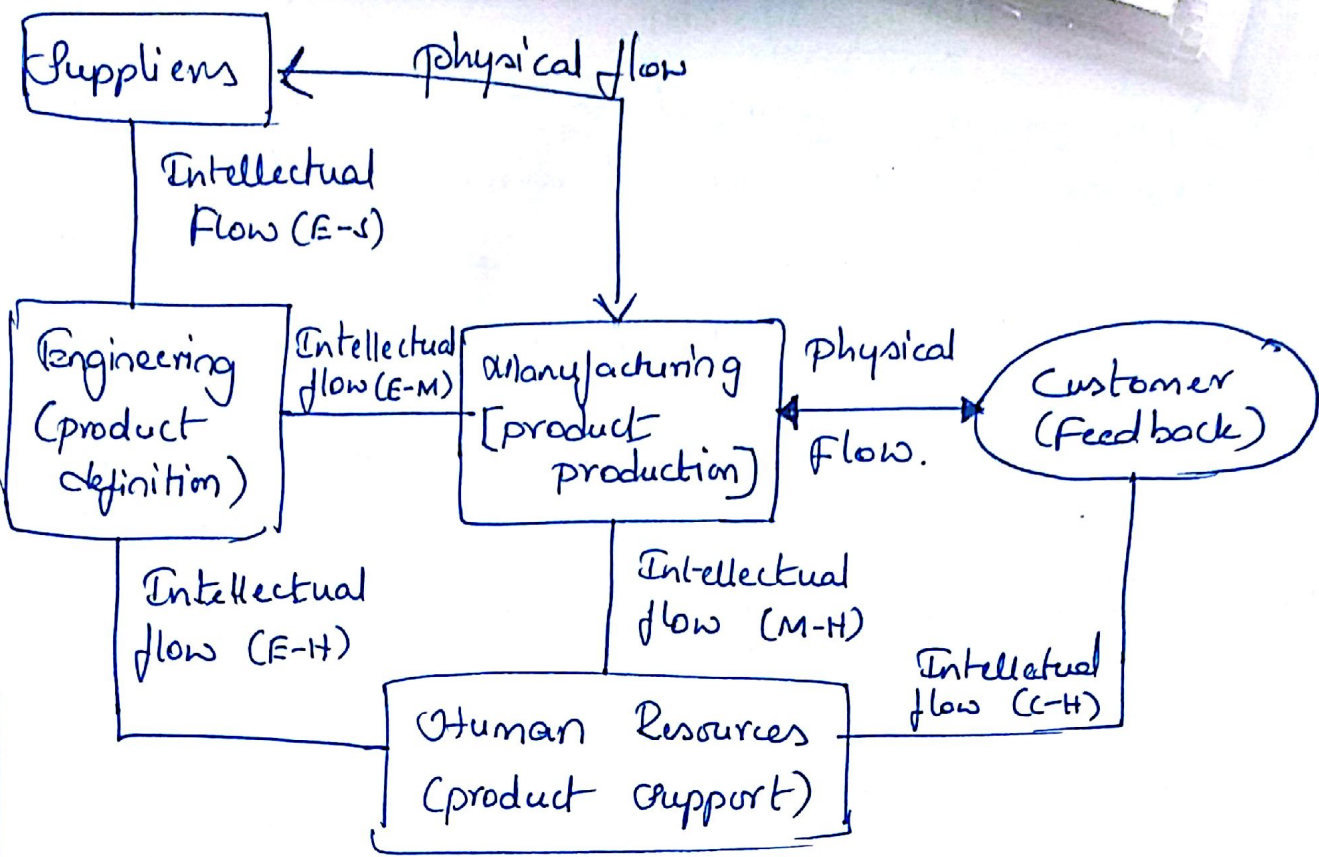 Suppliers
physical flow
Intellectual
Flow (E-S)
Engineering
(product
definition)
Intellectual
flow (E-M)
Manufacturing
[product
production]
physical
Flow.
Customer
(Feedback)
Intellectual
flow (E-H)
Intellectual
flow (M-H)
Intellatual
flow (C-H)
Human Resources
(product support)